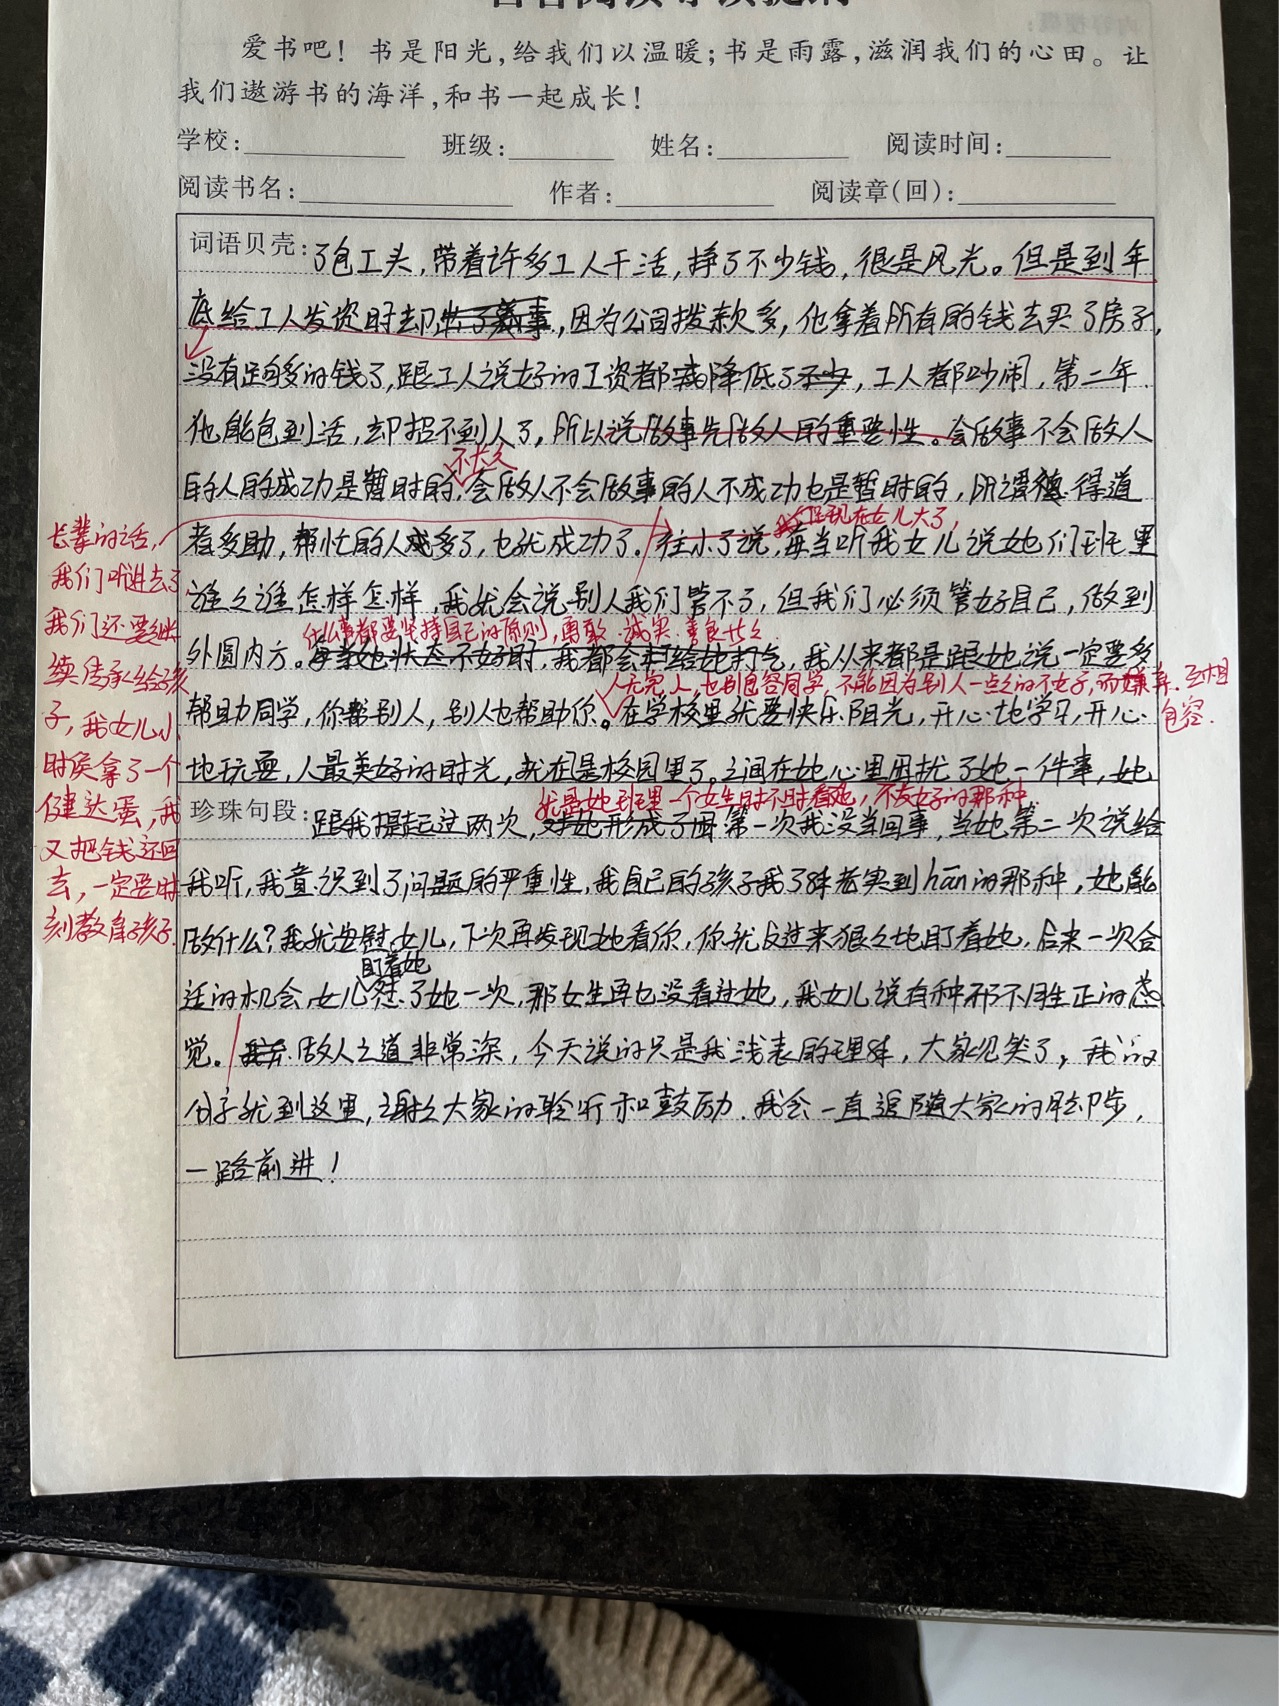 爱书吧！书是阳光,给我们以温暖;书是雨露,滋润我们的心田。让
我们遨游书的海洋,和书一起成长!
学校: 班级: 姓名: 阅读时间:
阅读书名: 作者: 阅读章(回):
词语贝壳:了包工头,带着许多工人干活,挣了不少钱,很是风光。但是到年
底给工人发资时却,因为公司拨款多,他拿着所有的钱去买了房子,
没有足够多的钱了,跟工人说好的工资都降低了不少,工人都吵闹,第二年
他能包到活,却招不到人了,所以说做事先做人的重要性。会做事不会做人
不长久
的人的成功是暂时的,会做人不会做事的人不成功也是暂时的,所谓得道
现在女儿大了,
者多助,帮忙的人多了,也就成功了。往小了说,每当听我女儿说她们班里
谁谁谁怎样怎样,我就会说别人我们管不了,但我们必须管好自己,做到
什么事都要坚持自己的原则,勇敢、诚实、善良长久
外圆内方。每当她状态不好时,我都会给她打气,我从来都是跟她说一定要多
人无完人,也别包容同学,不能因为别人一点点的不好,而嫌弃.互相
包容.
帮助同学,你帮别人,别人也帮助你。在学校里就要快乐阳光,开心地学习,开心
地玩耍,人最美好的时光,就在是校园里了。之间在她心里困扰了她一件事,她
就是她班里一个女生时不时看她,不友好的那种
珍珠句段:跟我提起这两次,对她形成了困第一次我没当回事,当她第二次说给
我听,我意识到了问题的严重性,我自己的孩子我了解老实到hān的那种,她能
做什么?我就安慰女儿,下次再发现她看你,你就反过来狠狠地盯着她,后来一次合
盯着她
适的机会,女儿怼了她一次,那女生再也没看过她,我女儿说有种邪不胜正的感
觉。做人之道非常深,今天说的只是我浅表的理解,大家见笑了,我的
分享就到这里,谢谢大家的聆听和鼓励.我会一直追随大家的脚步,
一路前进!
长辈的话,
我们听进去了
我们还要继
续传承给孩
子,我女儿小
时侯拿了一个
健达蛋,我
又把钱还回
去,一定要时
刻教育孩子.